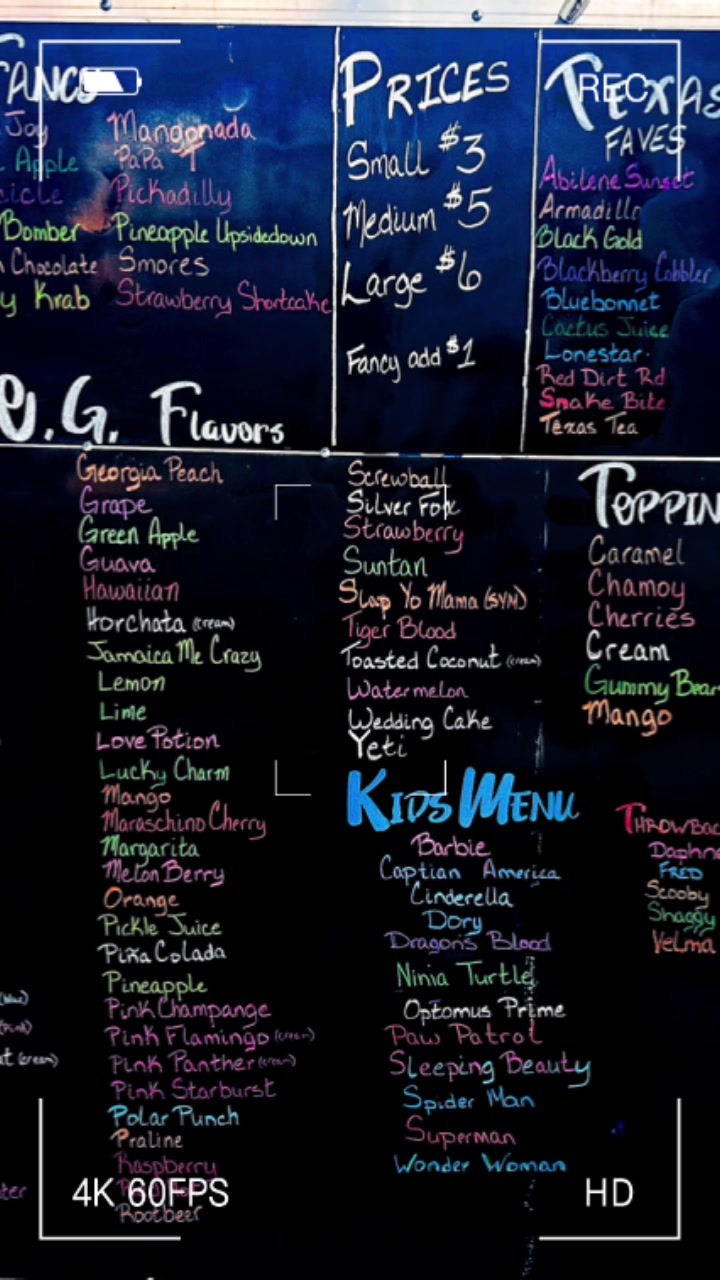 FANCY
Joy
Apple
Bomber
Chocolate
Krab
Mangonada
PaPa T
Pickadilly
Pineapple Upsidedown
Smores
Strawberry Shortcake
PRICES
Small $3
Medium $5
Large $6
Fancy add $1
TEXAS
FAVES
Abilene Sunset
Armadillo
Black Gold
Blackberry Cobbler
Bluebonnet
Cactus Juice
Lonestar
Red Dirt Rd
Snake Bite
Texas Tea
REC
O.G. Flavors
Georgia Peach
Grape
Green Apple
Guava
Hawaiian
Horchata (cream)
Jamaica Me Crazy
Lemon
Lime
Love Potion
Lucky Charm
Mango
Maraschino Cherry
Margarita
Melon Berry
Orange
Pickle Juice
Piña Colada
Pineapple
Pink Champange
Pink Flamingo (cream)
Pink Panther (cream)
Pink Starburst
Polar Punch
Praline
Raspberry
Rootbeer
Screwball
Silver Fox
Strawberry
Suntan
Slap Yo Mama (SYM)
Tiger Blood
Toasted Coconut (cream)
Watermelon
Wedding Cake
Yeti
KIDS MENU
Barbie
Captian America
Cinderella
Dory
Dragon's Blood
Ninja Turtle
Optomus Prime
Paw Patrol
Sleeping Beauty
Spider Man
Superman
Wonder Woman
TOPPIN
Caramel
Chamoy
Cherries
Cream
Gummy Bear
Mango
THROWBAC
Daphne
FRED
Scooby
Shaggy
Velma
(blue)
(pink)
(cream)
4K 60FPS
HD